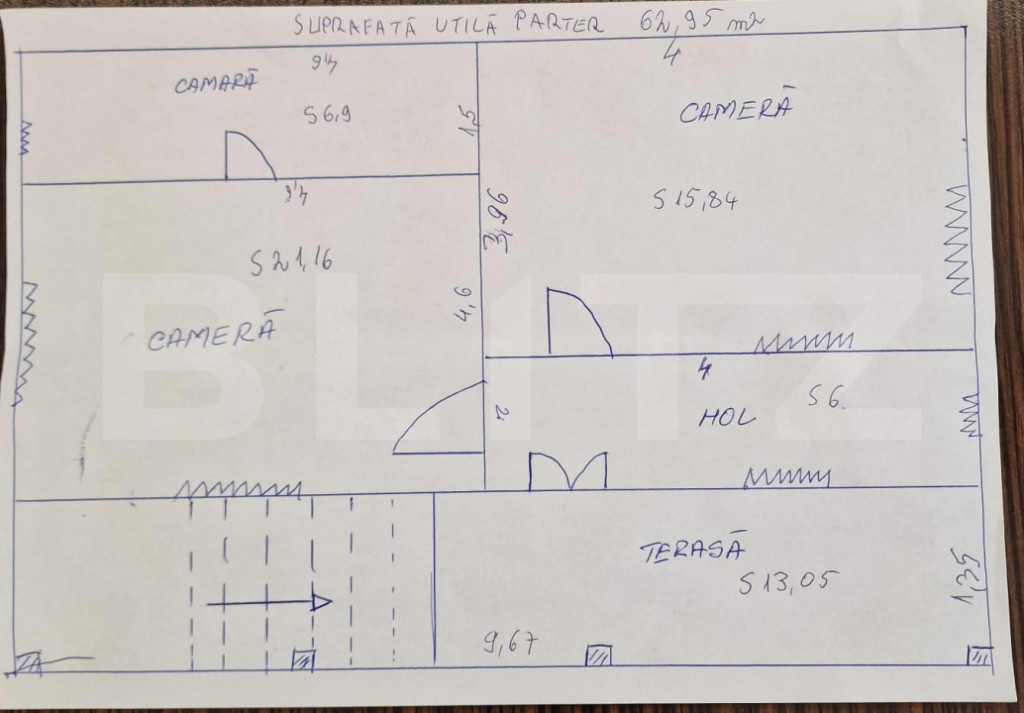 SUPRAFAȚĂ UTILĂ PARTER 62,95 m2
4,6
4
CAMARĂ
S 6,9
1,5
CAMERĂ
4,6
3,96
S 15,84
S 21,16
4,6
CAMERĂ
4
S 6
2
HOL
TERASĂ
S 13,05
1,35
9,67
BLITZ